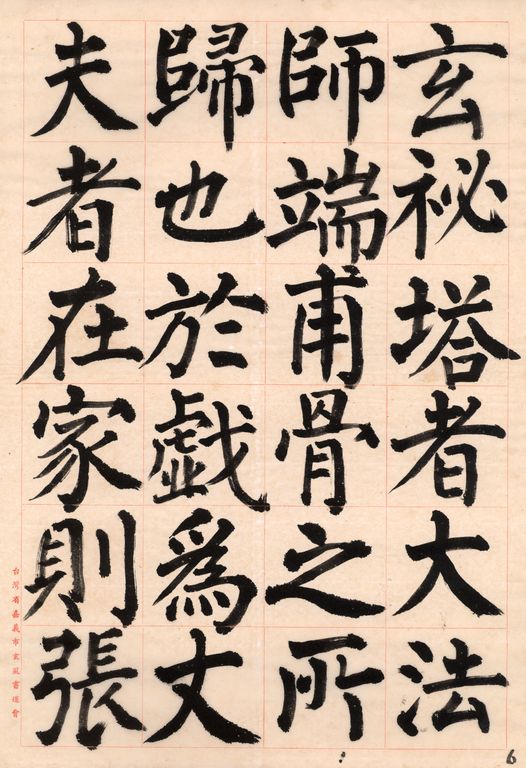 玄秘塔者大法
師端甫骨之所
歸也於戲為丈
夫者在家則張
台灣省嘉義市玄風書道會
6